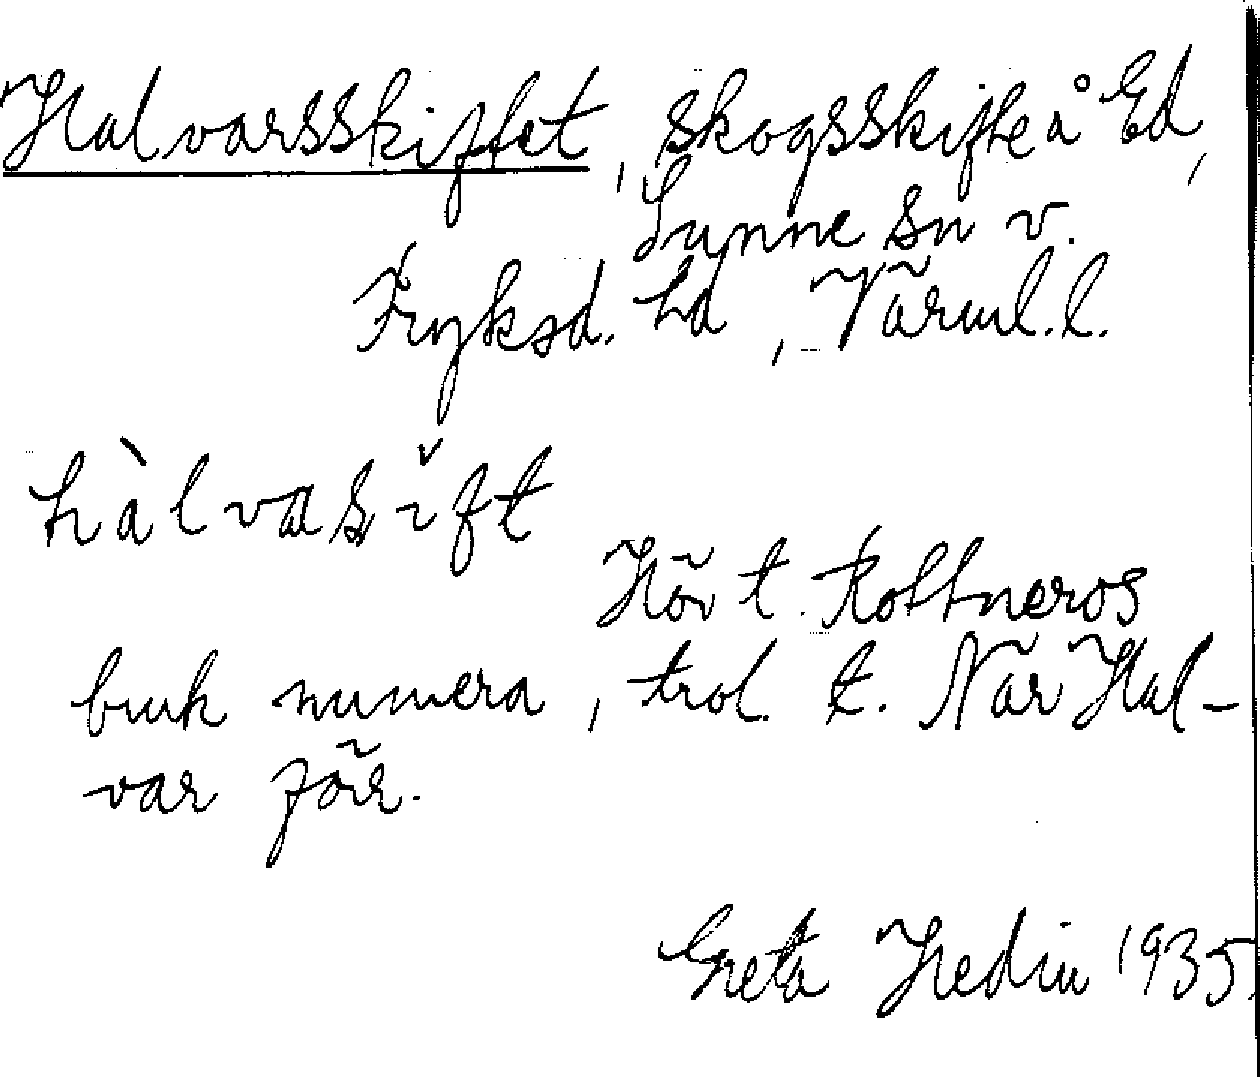 Halvarsskiftet, skogsskifte å Ed,
Sunne sn v.
Fryksd. hd, Värml. l.
hàlvasǐft
Hör t. Rottneros
bruk numera, trol. t. När Hal-
var förr.
Greta Hedin 1935.